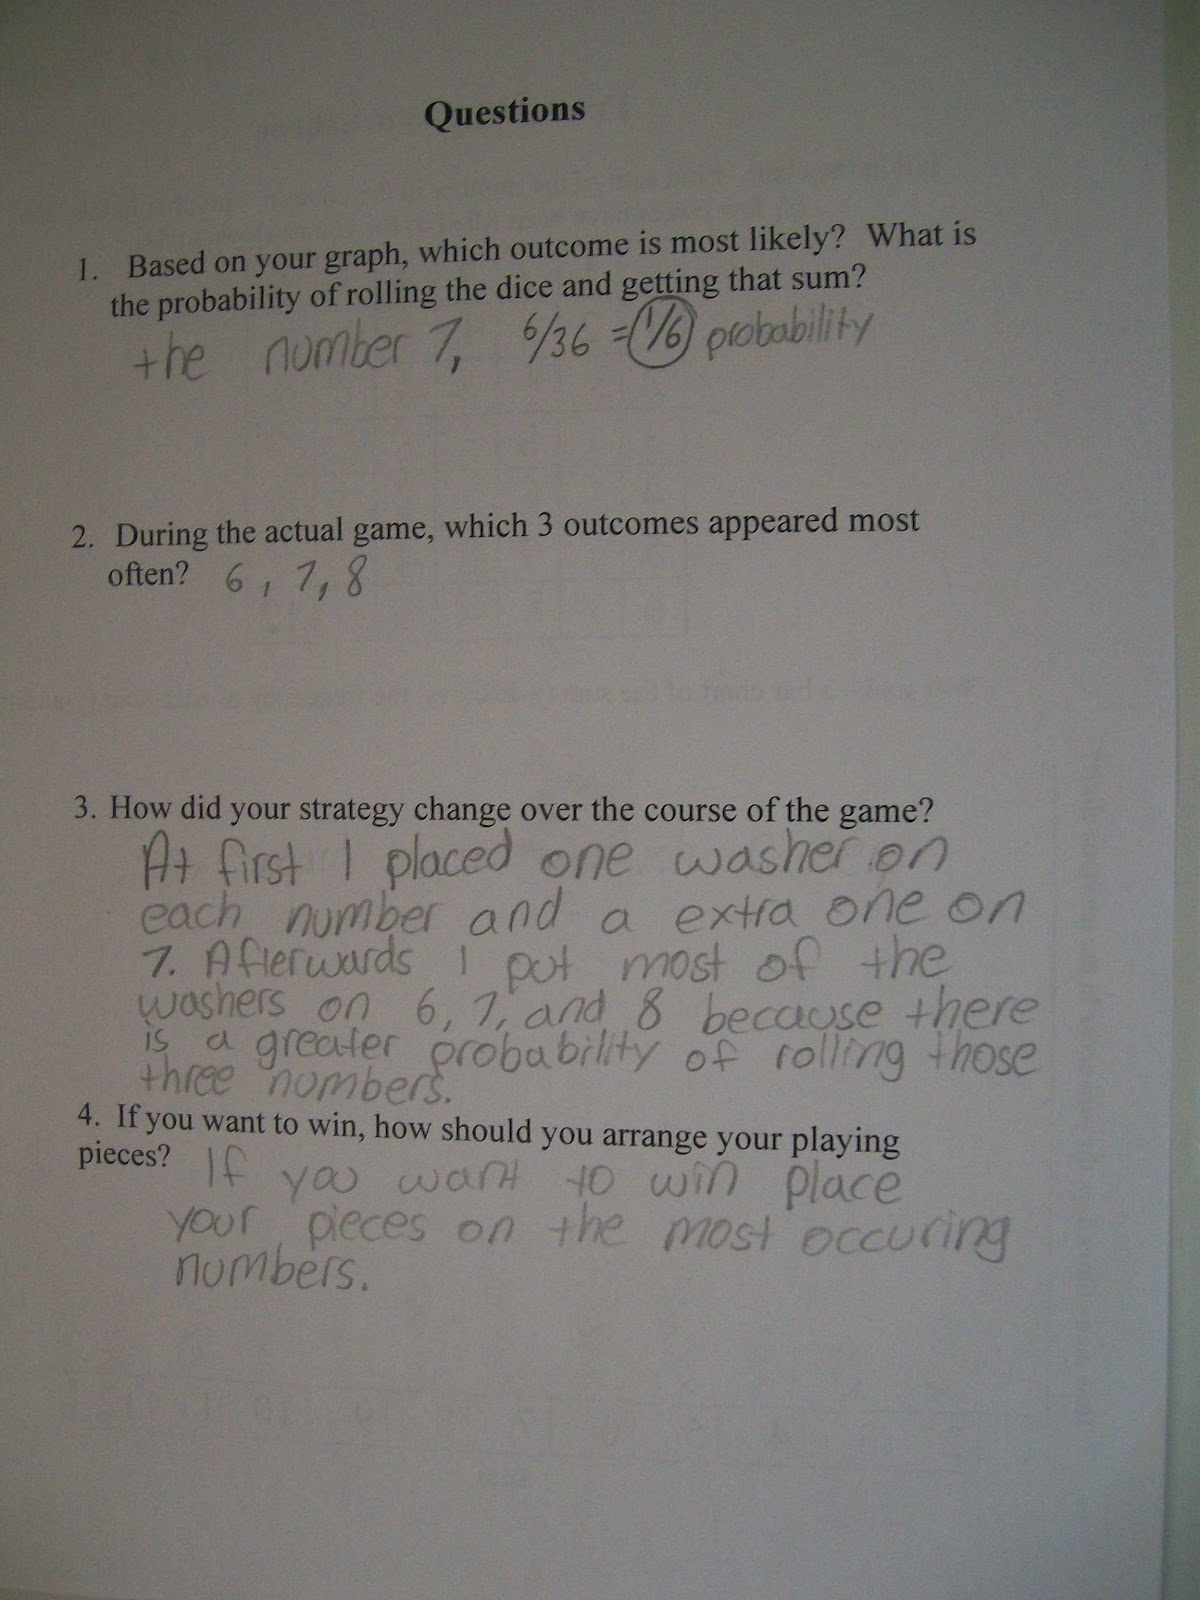 Questions
1. Based on your graph, which outcome is most likely? What is
the probability of rolling the dice and getting that sum?
the number 7, 6/36 = 1/6 probability
2. During the actual game, which 3 outcomes appeared most
often? 6, 7, 8
3. How did your strategy change over the course of the game?
At first I placed one washer on
each number and a extra one on
7. Afterwards I put most of the
washers on 6, 7, and 8 because there
is a greater probability of rolling those
three numbers.
4. If you want to win, how should you arrange your playing
pieces? If you want to win place
your pieces on the most occuring
numbers.